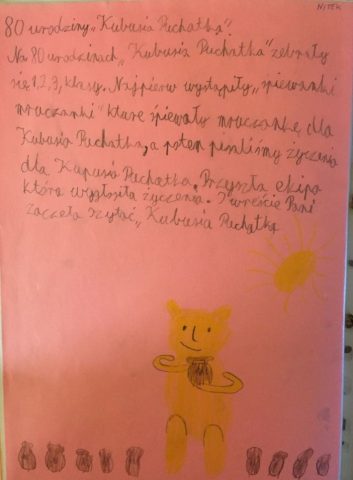 WITEK
80 urodziny „Kubusia Puchatka?
Na 80 urodzinach „Kubusia Puchatka” zebrały
się 1, 2, 3, klasy. Najpierw wystąpiły „śpiewanki
mruczanki” które śpiewały mruczankę dla
Kubusia Puchatka, a potem pisaliśmy życzenia
dla Kupusia Puchatka. Przyszła ekipa
która wygłosiła życzenia. I wreście Pani
zaczeła czytać „Kubusia Puchatka